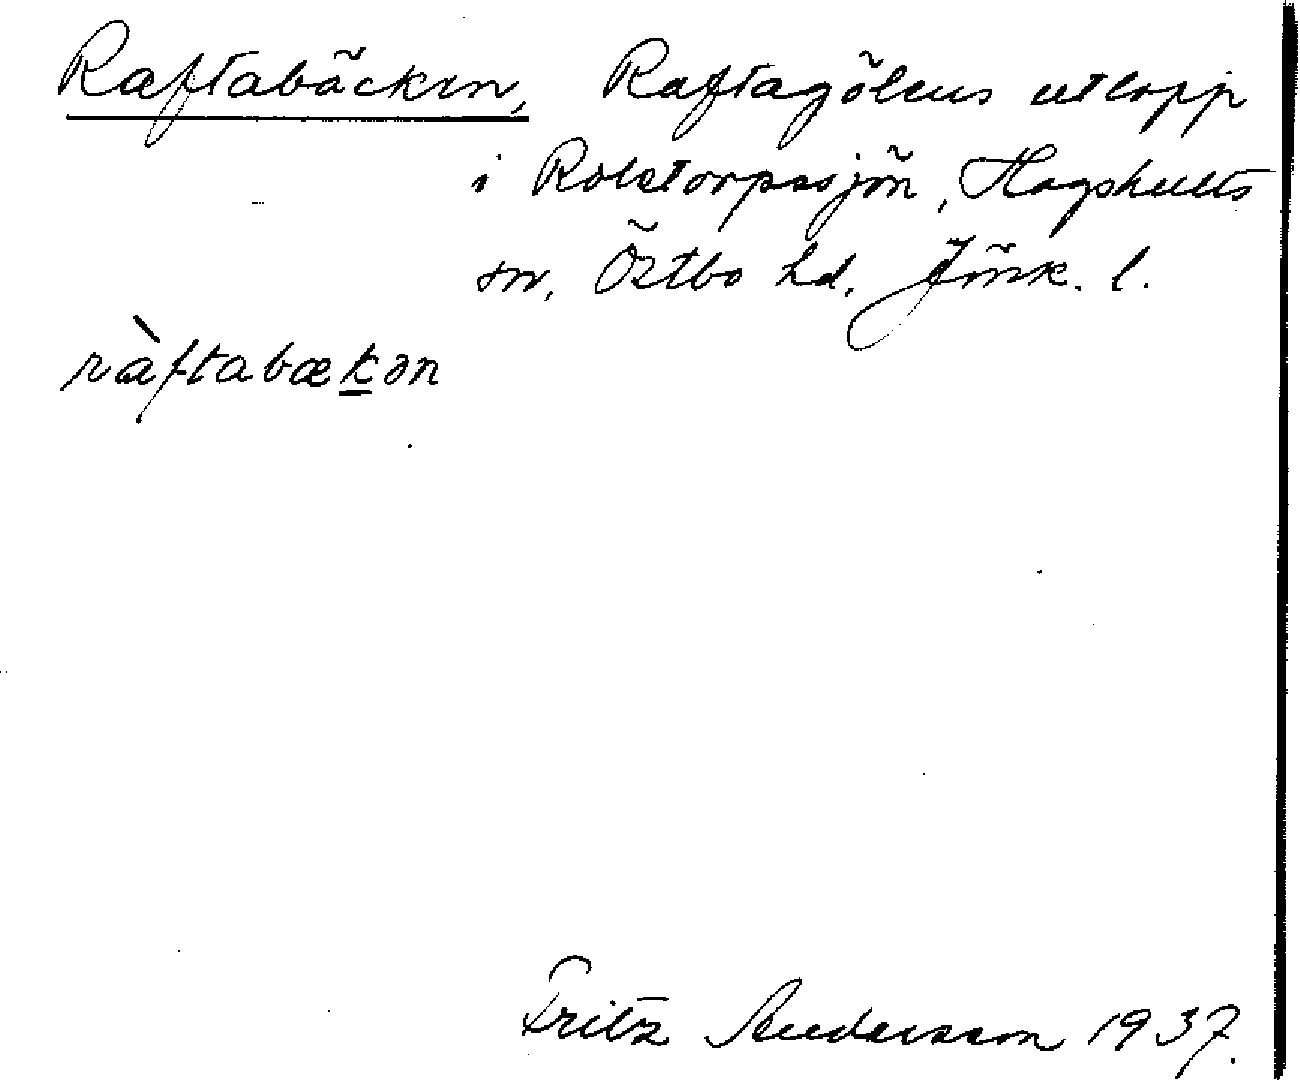 Raftabäcken, Raftagölens utlopp
i Rolstorpssjön, Hagshults
sn, Östbo hd, Jönk. l.
ràftabækən
Fritz Andersson 1937.